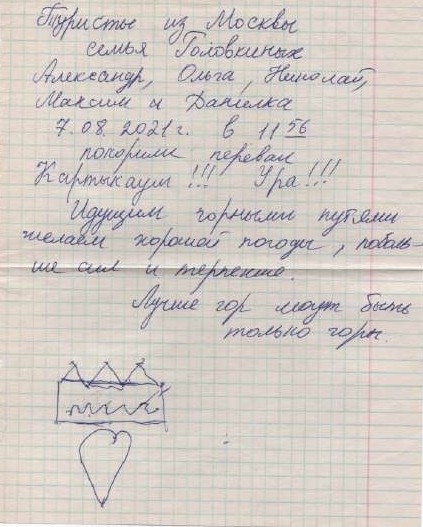 Туристы из Москвы
семья Головкиных
Александр, Ольга, Николай,
Максим и Данилка
7.08.2021 г. в 11 56
покорили перевал
Картыкауш !!! Ура !!!
Идущим горными путями
желаем хорошей погоды, поболь-
ше сил и терпение.
Лучше гор могут быть
только горы.